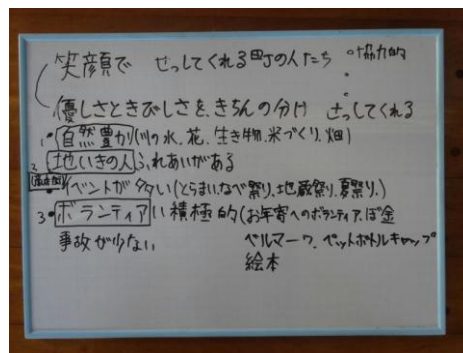 笑顔で せっしてくれる町の人たち ・協力的
優しさときびしさを、きちんの分け せっしてくれる
1・自然豊か(川の水、花、生き物、米づくり、畑)
2 地いきの人 ふれあいがある
・イベントが多い(とらまいなべ祭り、地蔵祭り、夏祭り、)
3・ボランティア い積極的(お年寄へのボランティア、ぼ金
事故が少ない ベルマーク、ペットボトルキャップ
絵本